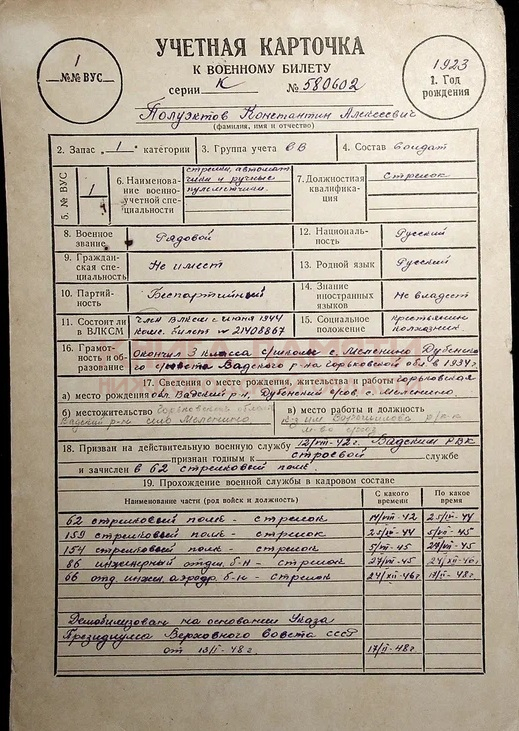 1
№№ ВУС
УЧЕТНАЯ КАРТОЧКА
К ВОЕННОМУ БИЛЕТУ
серии К № 580602
1923
1. Год
рождения
Полуэктов Константин Алексеевич
(фамилия, имя и отчество)
2. Запас „1“ категории 3. Группа учета СВ 4. Состав солдат
5. № ВУС 1
6. Наименова-
ние военно-
учетной спе-
циальности
стрелки, автомат
чики и ручные
пулеметчики.
7. Должностная
квалифика-
ция
Стрелок
8. Военное
звание
Рядовой
12. Националь-
ность
Русский
9. Граждан-
ская спе-
циальность
Не имеет
13. Родной язык Русский
10. Партий-
ность
Беспартийный
14. Знание
иностранных
языков
Не владеет
11. Состоит ли
в ВЛКСМ
член ВЛКСМ с июня 1944
комс. билет № 21408867
15. Социальное
положение
крестьянин
колхозник
16. Грамот-
ность и об-
разование
Окончил 3 класса с/школы с. Меленино Дубенско
го с/совета Вадского р-на горьковской обл в 1934г.
17. Сведения о месте рождения, жительства и работы горьковская
а) место рождения обл. Вадский р-н, Дубенский с/сов. с. Меленино
б) местожительство Горьковская область
Вадский р-н село Меленино
в) место работы и должность
к-з им. Ворошилова
18. Призван на действительную военную службу 12/VIII-42г. Вадским РВК
признан годным к строевой службе
и зачислен в 62 стрелковый полк.
19. Прохождение военной службы в кадровом составе
Наименование части (род войск и должность) С какого времени По какое время
62 стрелковый полк - стрелок 14/VIII-42 25/IV-44
159 стрелковый полк - стрелок 25/IV-44 5/VII-45
154 стрелковый полк - стрелок 5/VII-45 27/VII-45
86 инженерный отдел. б-н - стрелок 27/VII-45 24/XII-46
66 отд. инжен. аэродр. б-н - стрелок 24/XII-46г 17/II-48г
Демобилизован на основании Указа
Президиума Верховного Совета СССР
от 13/II-48г. 17/II-48г.